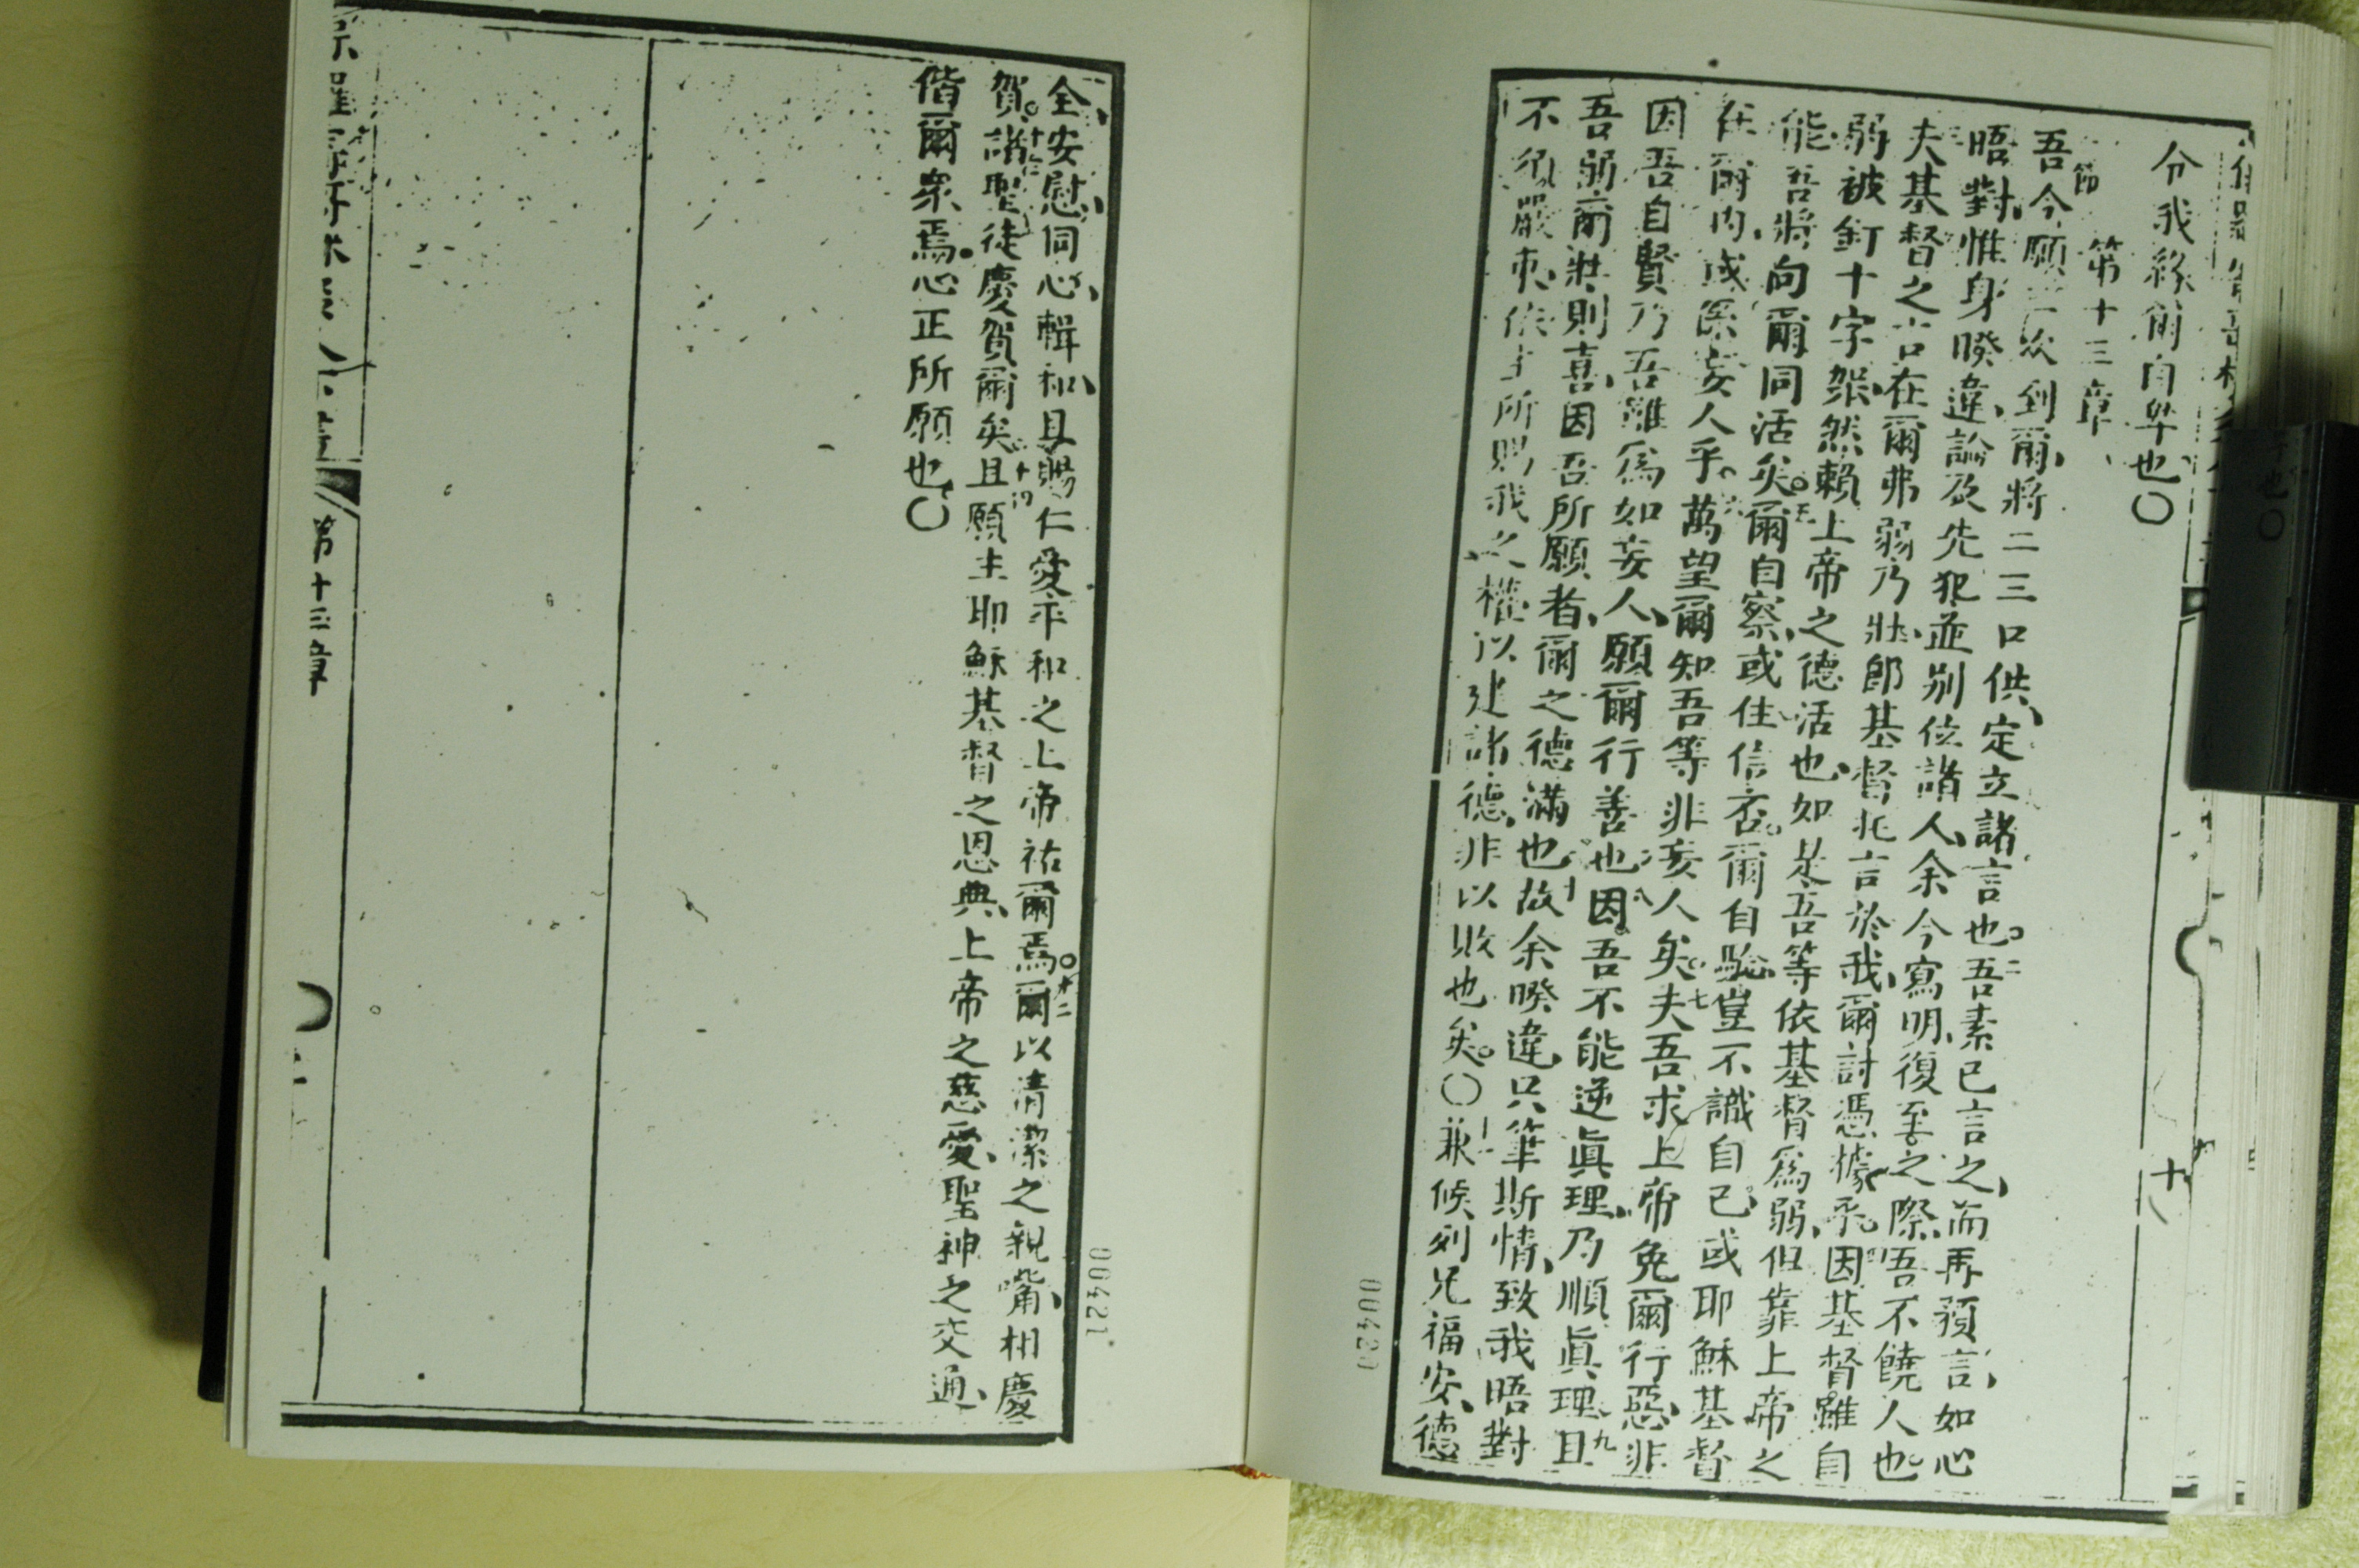 分我緣爾自卑也〇
第十三章
節
吾今願三次到爾將二三口供定立諸言也二吾素已言之而再預言如心
晤對惟身暌違論及先犯並別位諸人余今寫明復至之際吾不饒人也
夫基督之 在爾弗弱乃壯郎基督托言於我爾討憑據乎四因基督雖自
弱被釘十字架然賴上帝之德活也如是吾等依基督爲弱但靠上帝之
能吾將向爾同活矣五爾自察或住信否爾自驗豈不識自己或耶穌基督
在爾內或係妄人乎六萬望爾知吾等非妄人矣七夫吾求上帝免爾行惡非
因吾自賢乃吾雖爲如妄人願爾行善也八因吾不能逆眞理乃順眞理九且
吾弱爾壯則喜因吾所願者爾之德滿也十故余暌違只筆斯情致我晤對
不須嚴 依主所賜我之權以建諸德非以敗也矣〇兼候列兄福安德
00420
全安慰同心輯和且賜仁愛平和之上帝祐爾焉十二爾以清潔之親嘴相慶
賀十三諸聖徒慶賀爾矣十四且願主耶穌基督之恩典上帝之慈愛聖神之交通
偕爾衆焉心正所願也〇
00421
第十三章